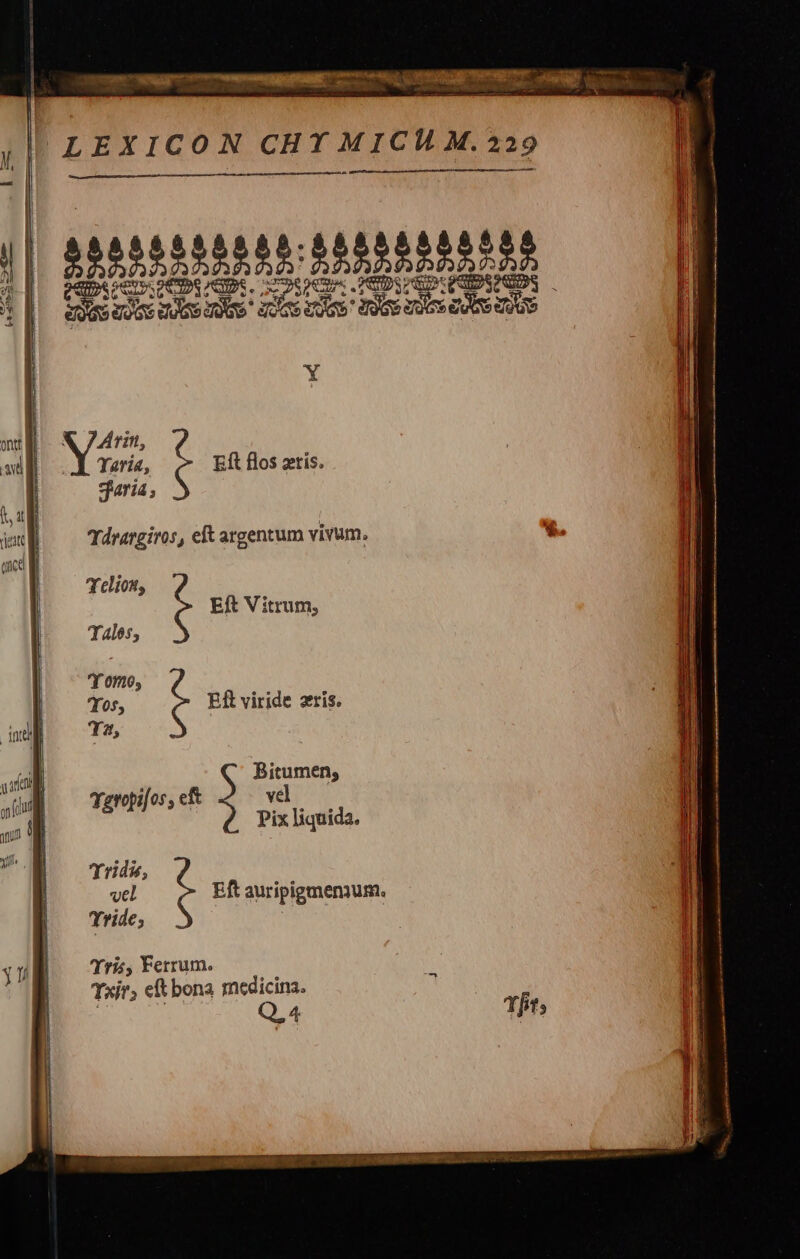 LEXICON CHYMICUM. 229
Y
YArin,
Yaria, Eſt flos æris.
Jaria,
Ydrargiros, eſt argentum vivum.
Yelion,
Eſt Vitrum,
Yales,
Yomo,
Yos, Eſt viride æris.
Bitumen,
Ygropiſos, eſt vel
Pix liquida.
Yridis,
vel Eſt auripigmentum.
Yride,
Yris, Ferrum.
Yxir, eſt bona medicina.
Q 4
Yſir,